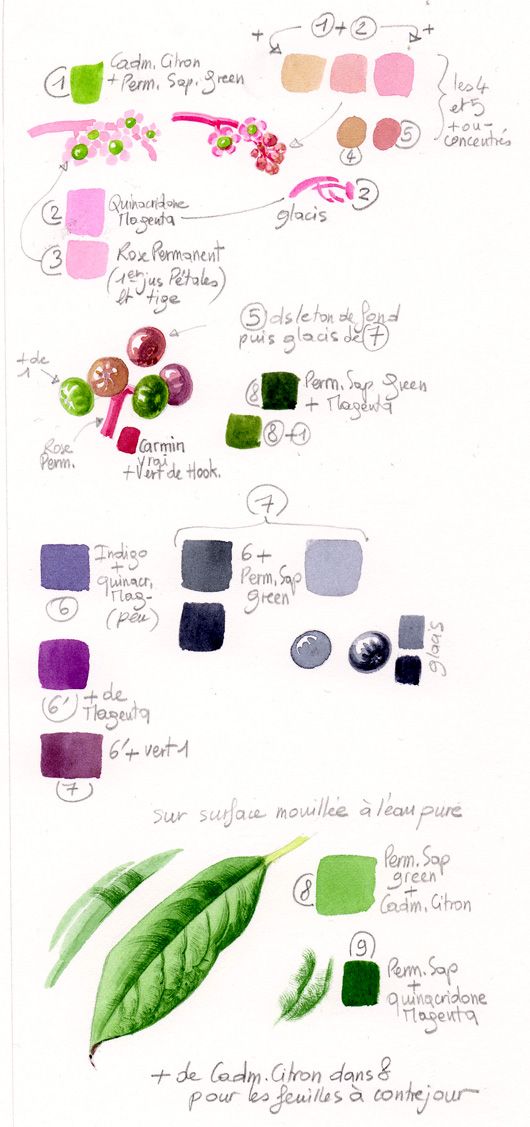 ① + ②
+ +
① Cadm. Citron
+ Perm. Sap. Green
les 4
et 5
+ ou -
concentrés
④ ⑤
② Quinacridone
Magenta
glacis ②
③ Rose Permanent
(1er jus Pétales)
et tige
⑤ ds le ton de fond
puis glacis de ⑦
+ de
1
8 Perm. Sap Green
+ Magenta
⑧+1
Rose
Perm.
Carmin
vrai
+ Vert de Hook.
⑦
Indigo
+
quinacr.
Mag-
(peu)
⑥
6 +
Perm. Sap
green
glacis
6' + de
Magenta
6' + vert 1
⑦
sur surface mouillée à l'eau pure
⑧ Perm. Sap
green
+
Cadm. Citron
⑨
Perm. Sap
+
quinacridone
Magenta
+ de Cadm. Citron dans 8
pour les feuilles à contrejour